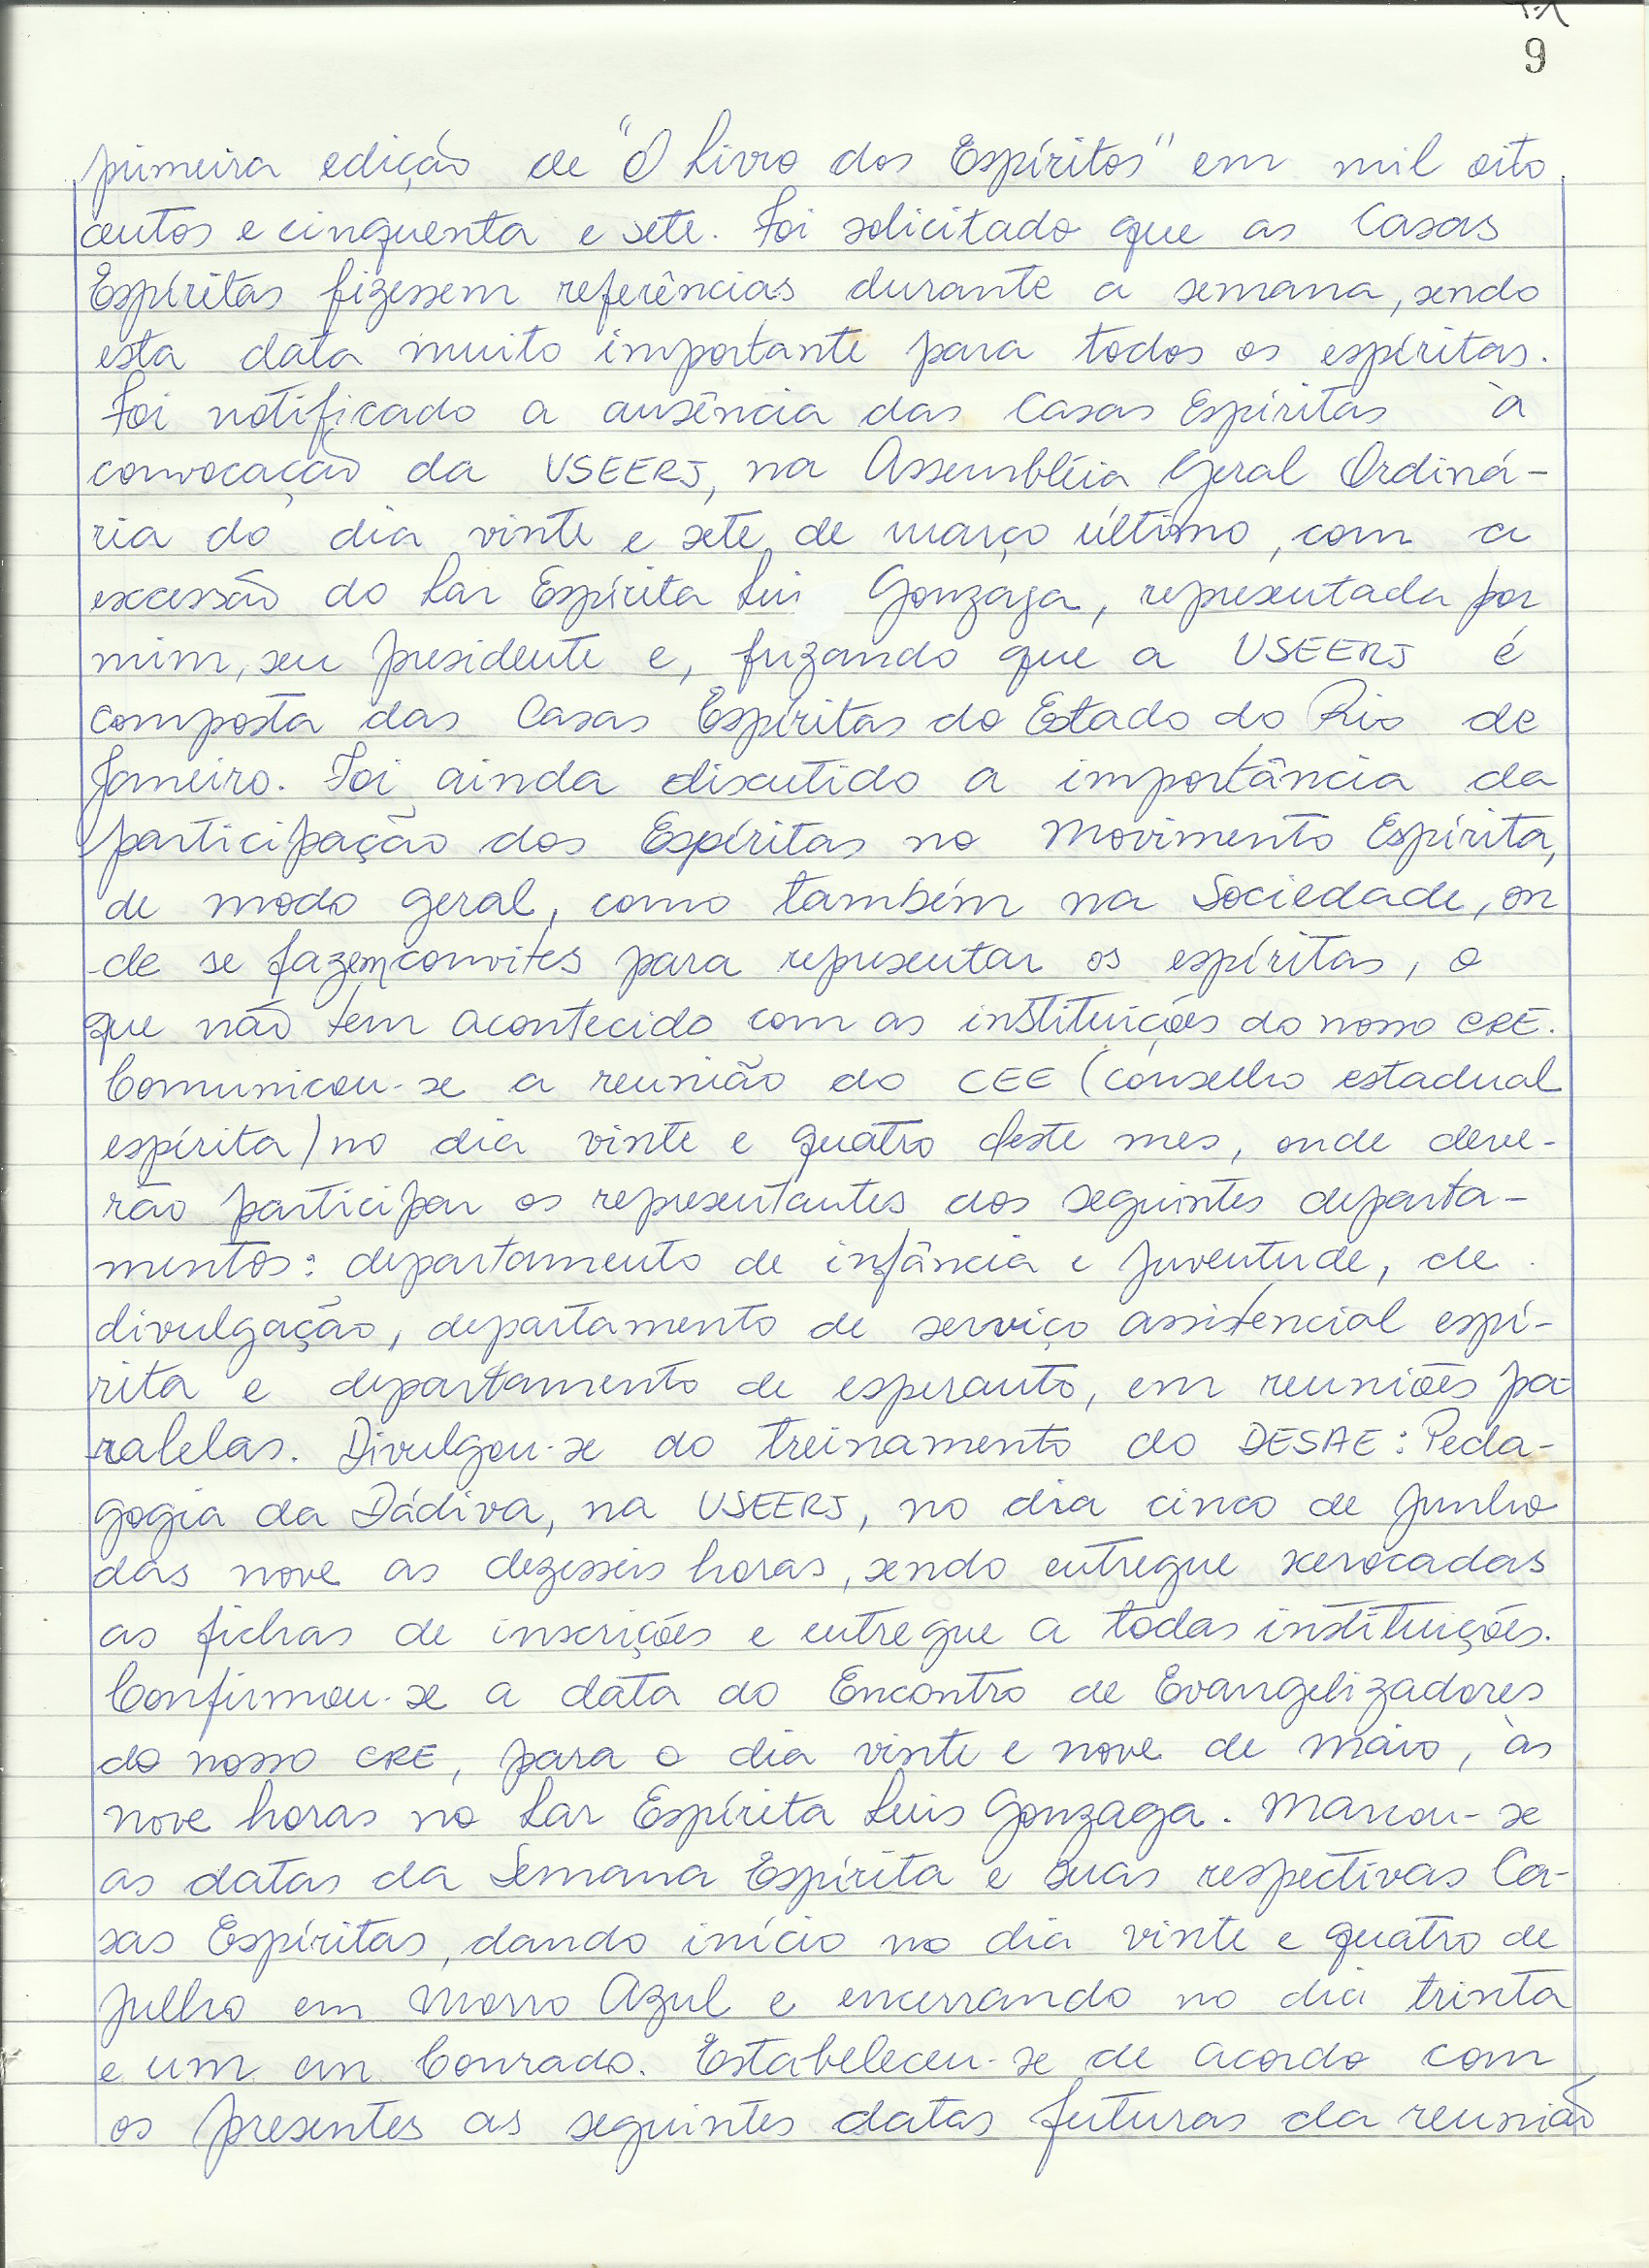 9
primeira edição de "O Livro dos Espíritos" em mil oito
centos e cinquenta e sete. Foi solicitado que as Casas
Espíritas fizessem referências durante a semana, sendo
esta data muito importante para todos os espíritas.
Foi notificado a ausência das Casas Espíritas à
convocação da USEERJ, na Assembléia Geral Ordiná-
ria do dia vinte e sete de março último, com a
excessão do Lar Espírita Luis Gonzaga, representada por
mim, seu presidente e, frizando que a USEERJ é
composta das Casas Espíritas do Estado do Rio de
Janeiro. Foi ainda discutido a importância da
participação dos Espíritas no Movimento Espírita,
de modo geral, como também na Sociedade, on
-de se fazem convites para representar os espíritas, o
que não tem acontecido com as instituições do nosso CRE.
Comunicou-se a reunião do CEE (conselho estadual
espírita) no dia vinte e quatro deste mes, onde deve-
rão participar os representantes dos seguintes departa-
mentos: departamento de infância e juventude, de
divulgação, departamento de serviço assistencial espí-
rita e departamento de esperanto, em reuniões pa-
ralelas. Divulgou-se do treinamento do DESAE: Peda-
gogia da Dádiva, na USEERJ, no dia cinco de junho
das nove as dezesseis horas, sendo entregue xerocadas
as fichas de inscrições e entregue a todas instituições.
Confirmou-se a data do Encontro de Evangelizadores
do nosso CRE, para o dia vinte e nove de maio, às
nove horas no Lar Espírita Luis Gonzaga. Marcou-se
as datas da Semana Espírita e suas respectivas Ca-
sas Espíritas, dando início no dia vinte e quatro de
julho em Morro Azul e encerrando no dia trinta
e um em Conrado. Estabeleceu-se de acordo com
os presentes as seguintes datas futuras da reunião